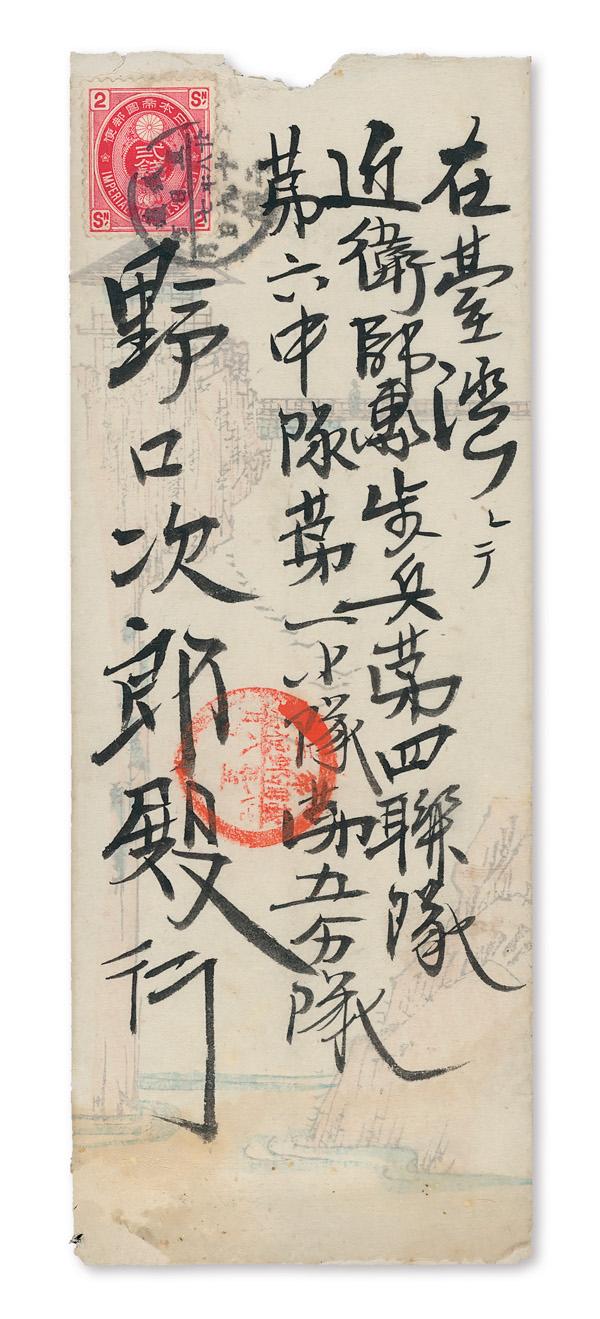 在臺湾ニテ
近衛師團歩兵第四聯隊
第六中隊第一小隊第五分隊
野口次郎殿行
2 SN
大日本帝國郵便
貳錢
IMPERIAL
SN 2